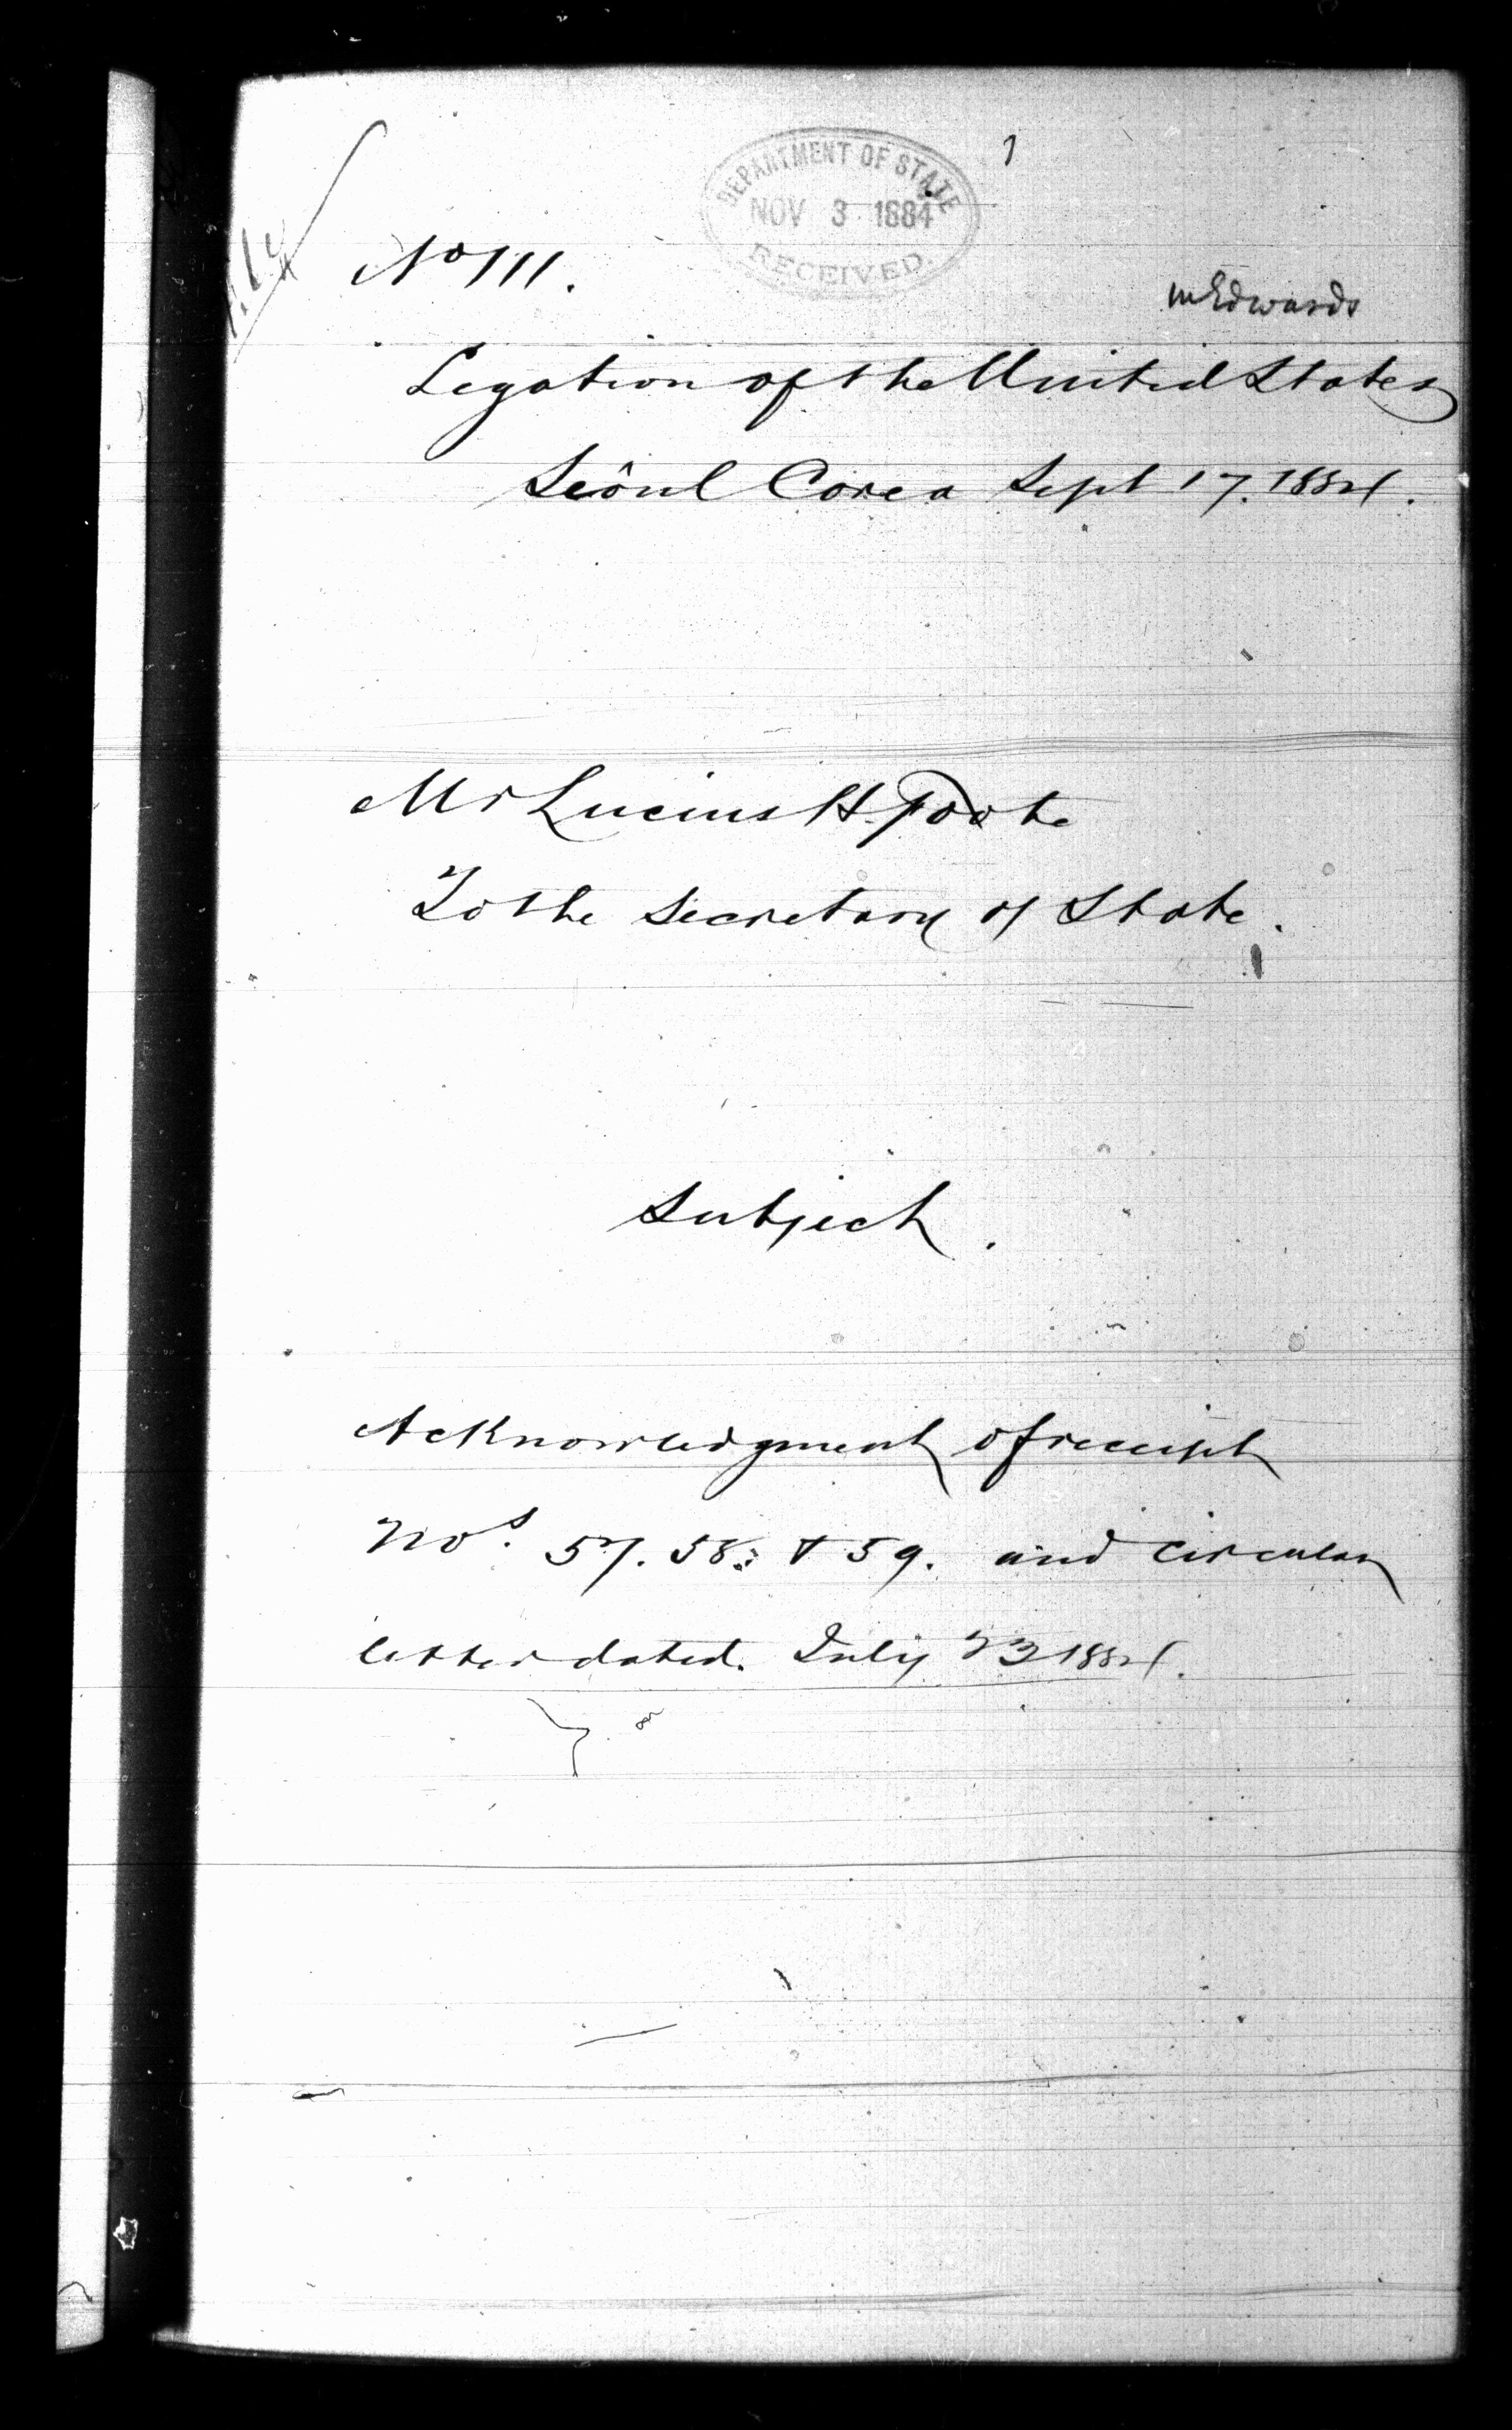 DEPARTMENT OF STATE
NOV 3 1884
RECEIVED.
No 111.
Mr Edwards
Legation of the United States
Seôul Corea Sept 17. 1884.
Mr Lucius H. Foote
To the Secretary of State.
Subject.
Acknowledgment of receipt
Nos. 57. 58. & 59. and circular
letter dated. July 23 1884.